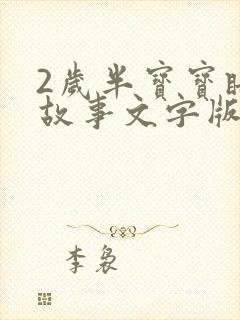 2歲半寶寶睡
故事文字版
李裊